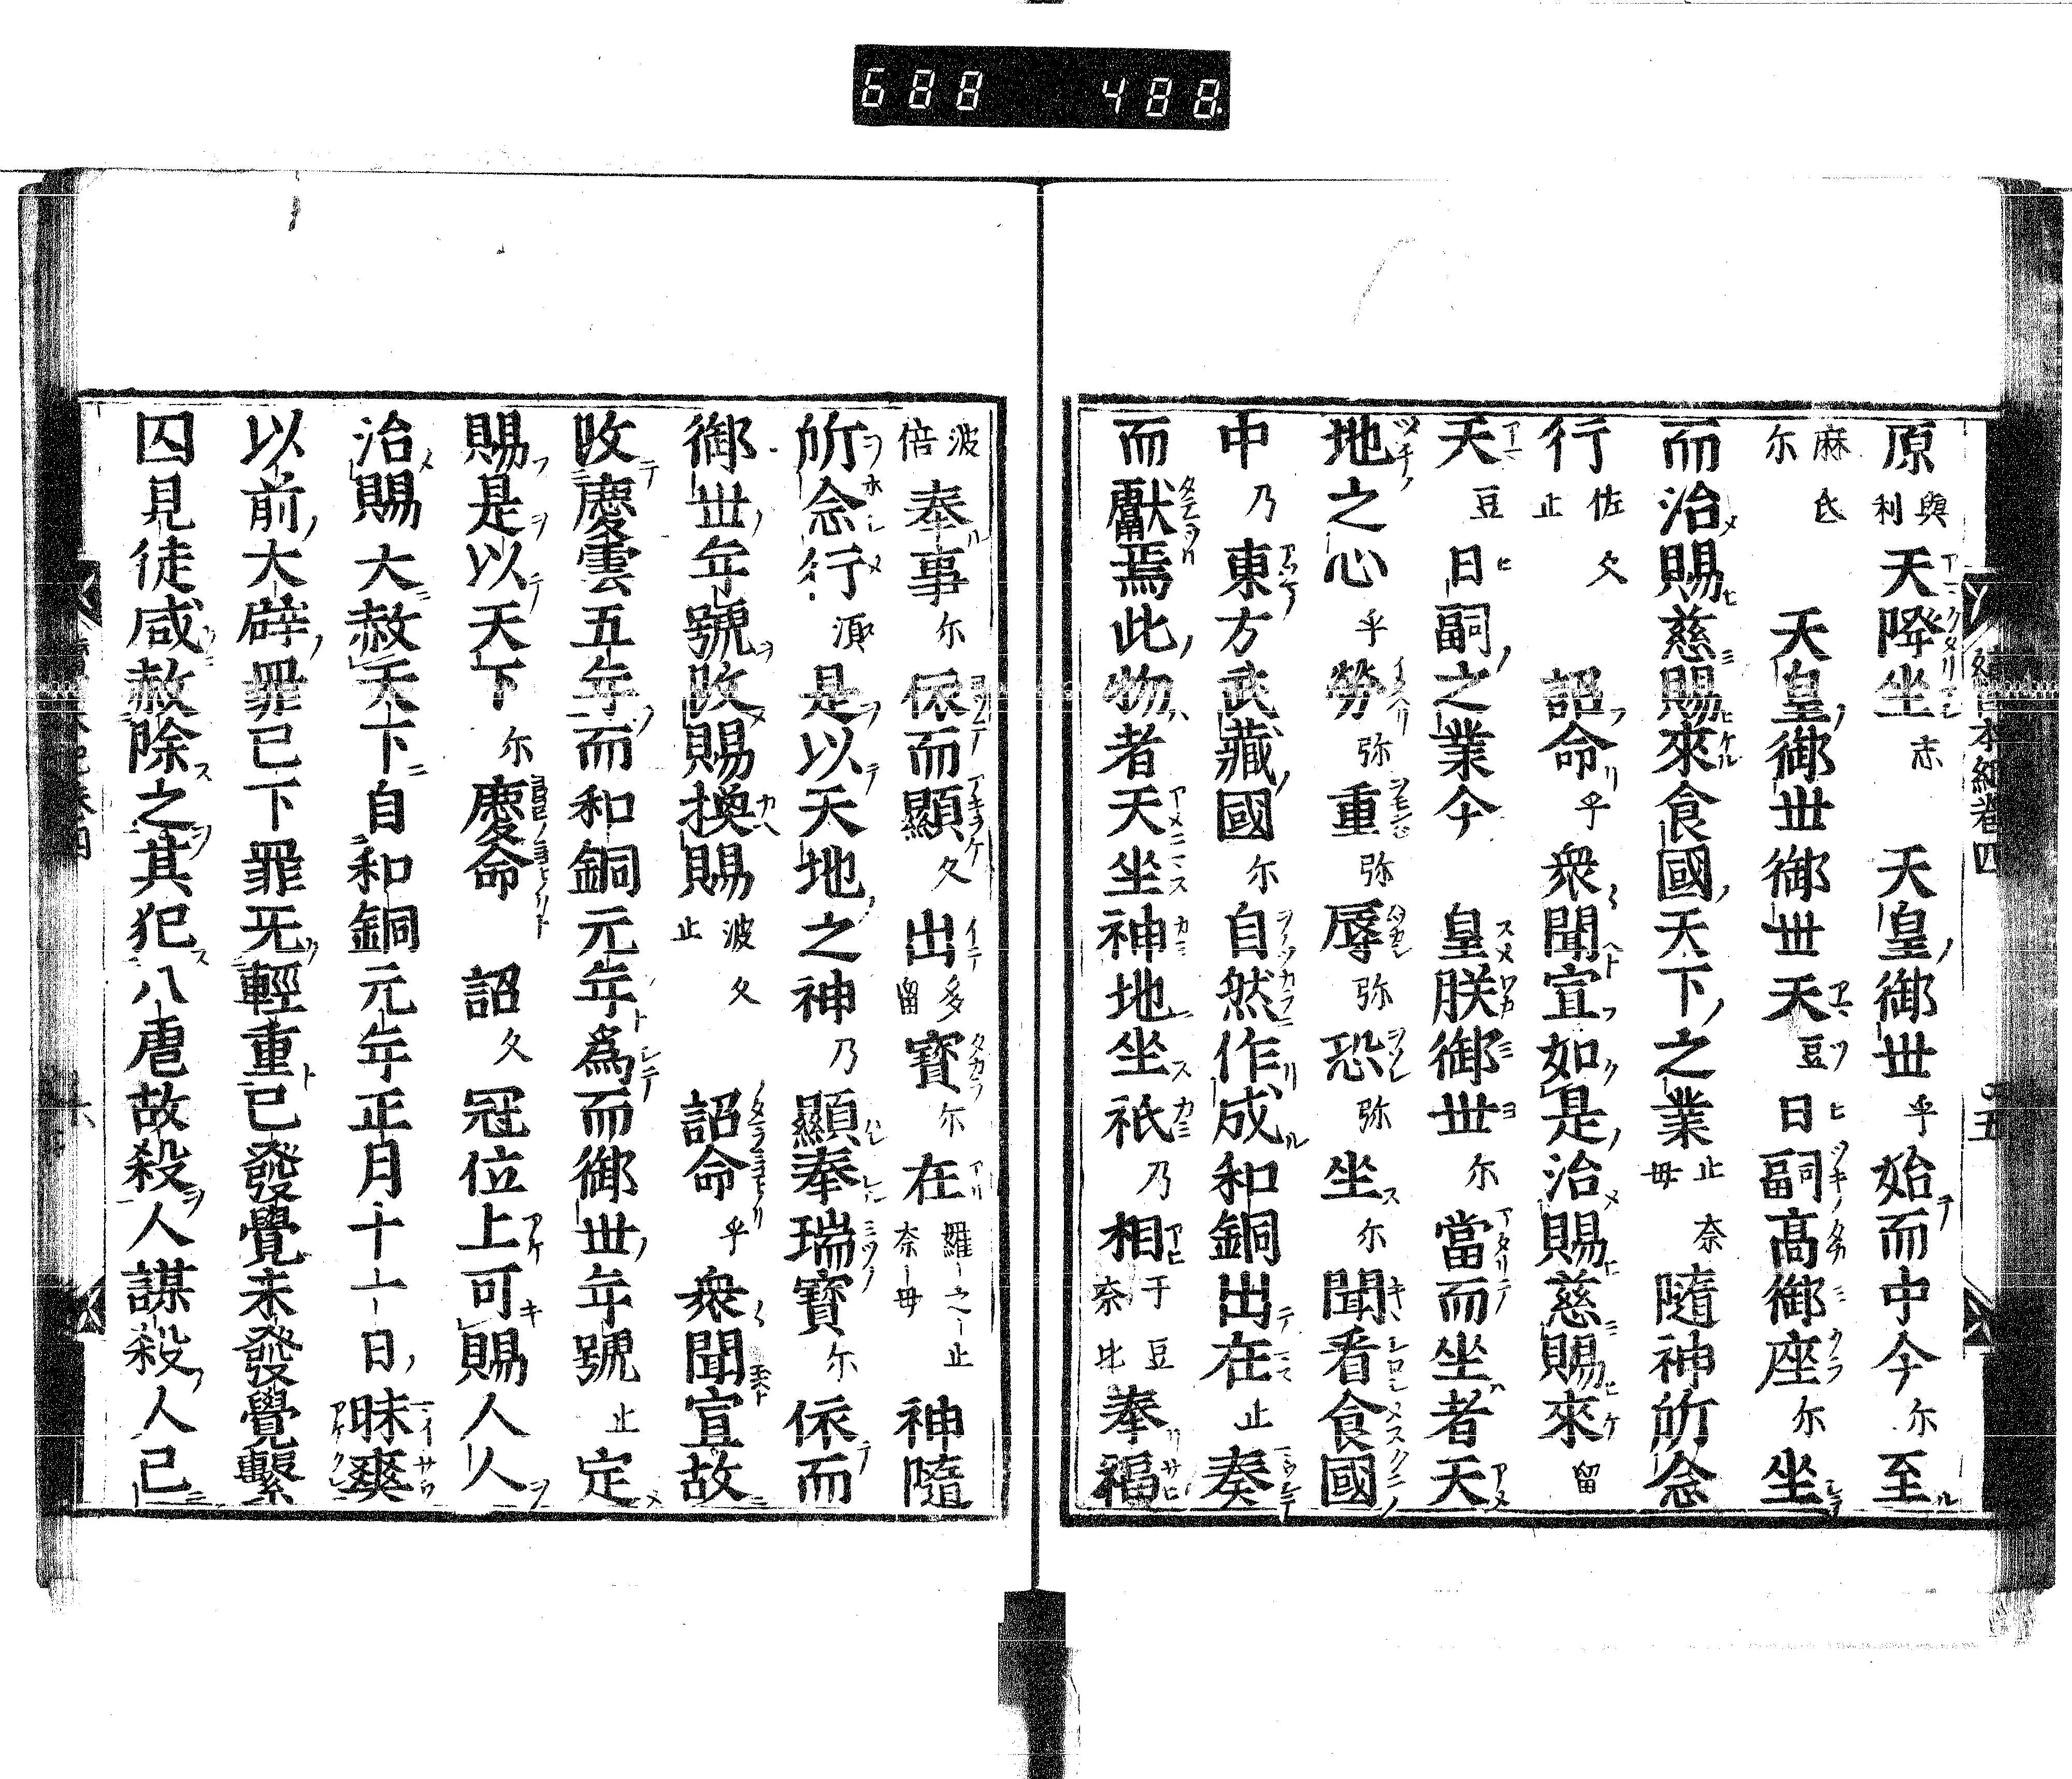 688 488
原與利天降坐志天皇御世乎始而中今尓至
麻氐尓天皇御世御世天豆日嗣高御座尓坐
而治賜慈賜來食國天下之業止奈毋隨神所念
行佐久止詔命乎衆聞宣如是治賜慈賜來留
天豆日嗣之業今皇朕御世尓當而坐者天
地之心乎勞弥重弥辱弥恐弥坐尓聞看食國
中乃東方武藏國尓自然作成和銅出在止奏
而獻焉此物者天坐神地坐祇乃相于豆奈比奉福
波倍奉事尓依而顯久出多留寶尓在羅之止奈毋神隨
所念行湏是以天地之神乃顯奉瑞寶尓依而
御世年號改賜換賜波久止詔命乎衆聞宣故
改慶雲五年而和銅元年爲而御世年號止定
賜是以天下尓慶命詔久冠位上可賜人人
治賜大赦天下自和銅元年正月十一日昧爽
以前大辟罪已下罪无輕重已發覺未發覺繫
囚見徒咸赦除之其犯八虐故殺人謀殺人已
續日本紀卷四 五